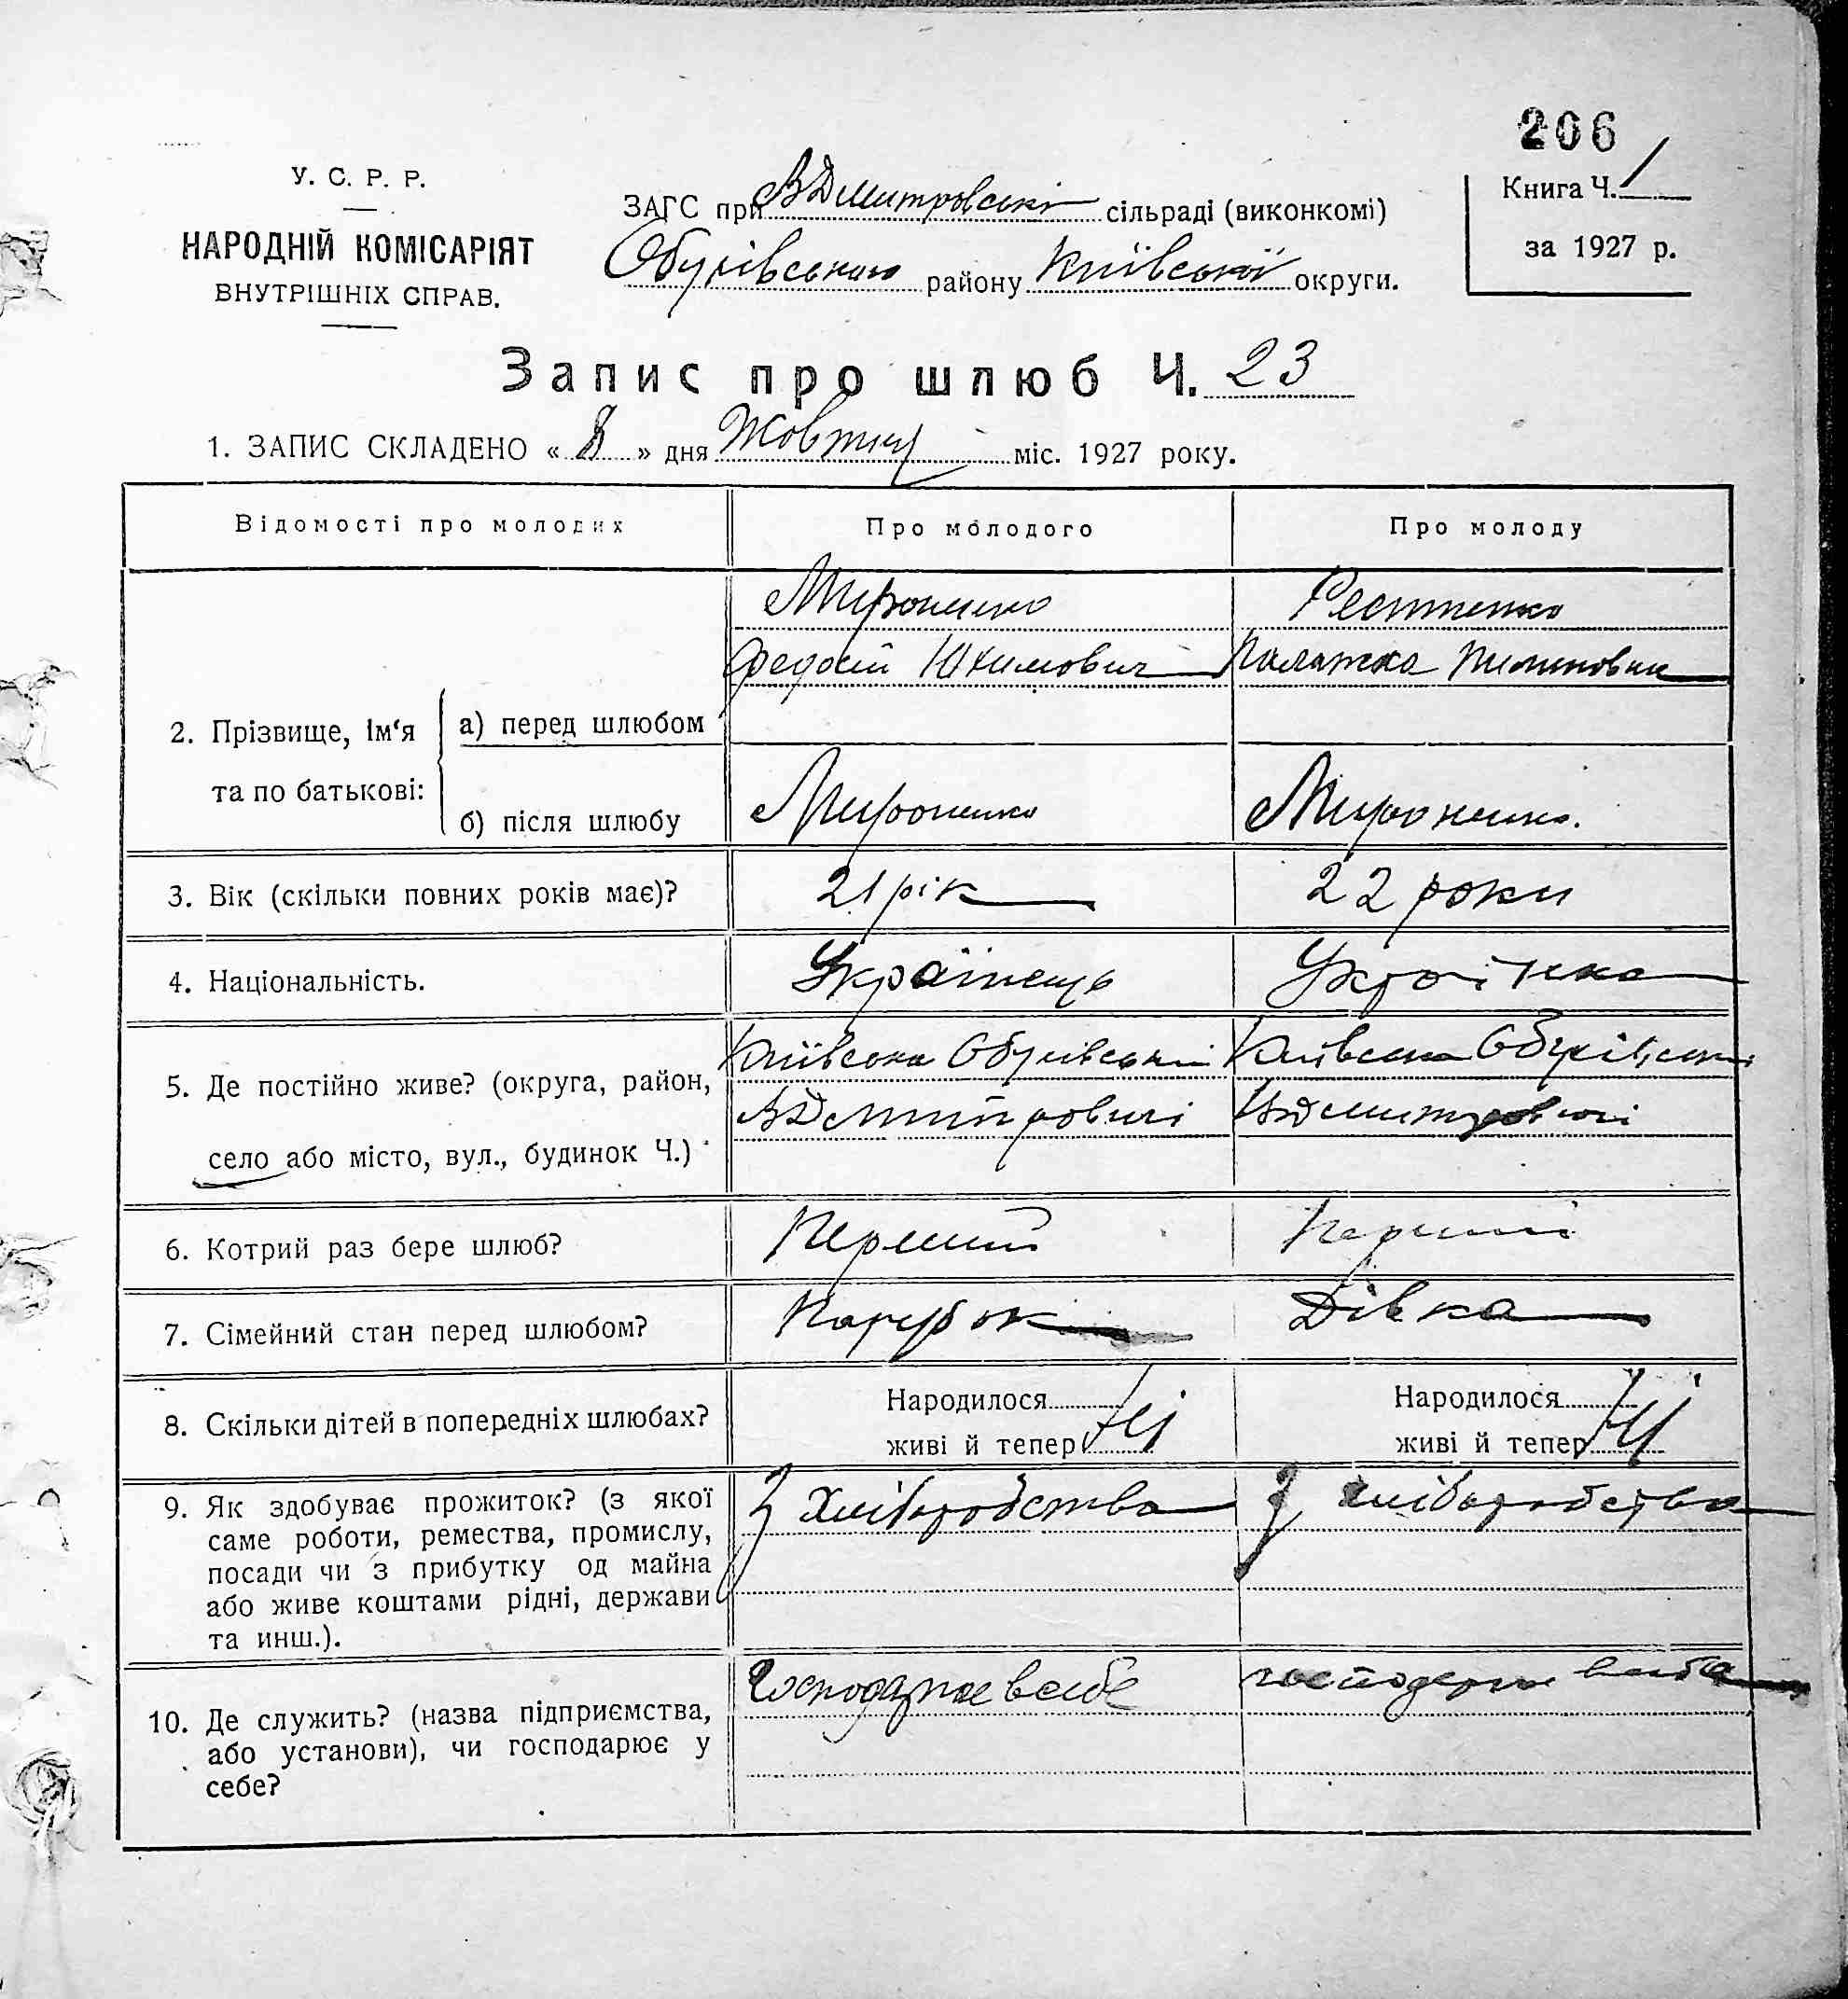 206
У. С. Р. Р.
НАРОДНІЙ КОМІСАРІЯТ
ВНУТРІШНІХ СПРАВ.
ЗАГС при ВДмитровські сільраді (виконкомі)
Обухівського району Київської округи.
Книга Ч. 1
за 1927 р.
Запис про шлюб Ч. 23
1. ЗАПИС СКЛАДЕНО « 8 » дня Жовтня міс. 1927 року.
Відомості про молодих Про молодого Про молоду
2. Прізвище, Ім‘я та по батькові:
а) перед шлюбом
Мироненко
Федосій Юхимович
Палажка
б) після шлюбу Мироненко Мироненко.
3. Вік (скільки повних років має)? 21 рік 22 роки
4. Національність. Українець Українка
5. Де постійно живе? (округа, район, Київська Обухівський Київська Обухівський
село або місто, вул., будинок Ч.) ВДмитровичі ВДмитровичі
6. Котрий раз бере шлюб? Перший Перший
7. Сімейний стан перед шлюбом? Парубок Дівка
8. Скільки дітей в попередніх шлюбах?
Народилося Народилося
живі й тепер Ні живі й тепер Ні
9. Як здобуває прожиток? (з якої З Хліборобства З хліборобства
саме роботи, ремества, промислу,
посади чи з прибутку од майна
або живе коштами рідні, держави
та инш.).
10. Де служить? (назва підприємства, Господарює в себе господарює в себе
або установи), чи господарює у
себе?